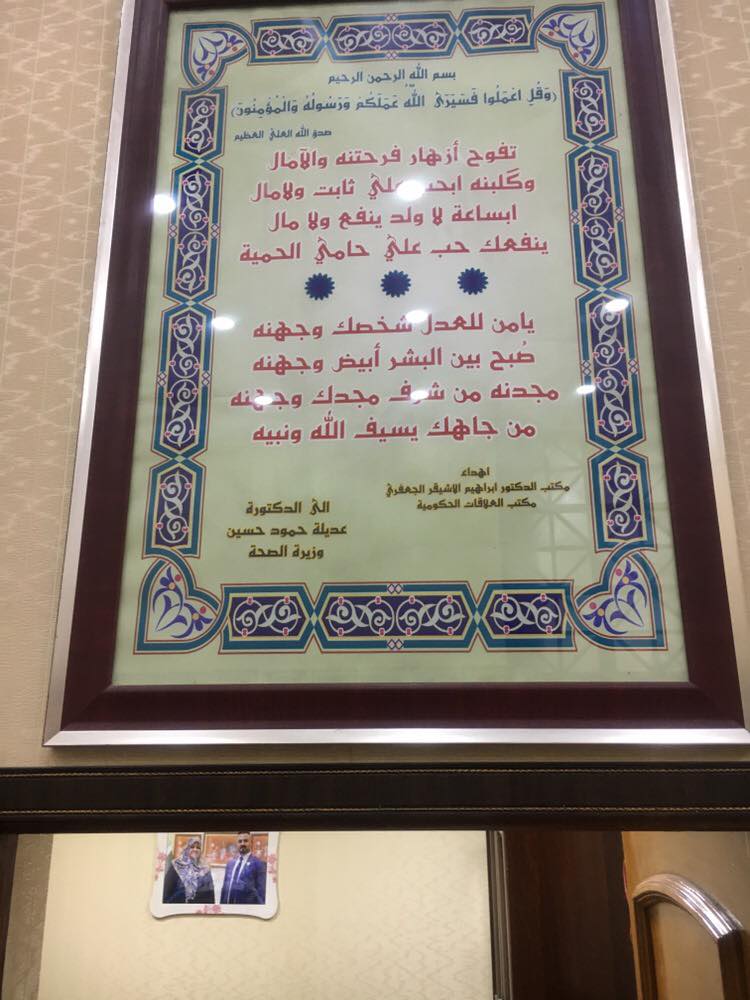 بسم الله الرحمن الرحيم
(وَقُلِ اعْمَلُوا فَسَيَرَى اللَّهُ عَمَلَكُمْ وَرَسُولُهُ وَالْمُؤْمِنُونَ)
صدق الله العلي العظيم
تفوح أزهار فرحتنه والآمال
وگلبنه ابحب علي ثابت ولامال
ابساعة لا ولد ينفع ولا مال
ينفعك حب علي حامي الحمية
يامن للعدل شخصك وجهنه
صُبح بين البشر أبيض وجهنه
مجدنه من شرف مجدك وجهنه
من جاهك يسيف الله ونبيه
اهداء
مكتب الدكتور ابراهيم الاشيقر الجعفري
مكتب العلاقات الحكومية
الى الدكتورة
عديلة حمود حسين
وزيرة الصحة